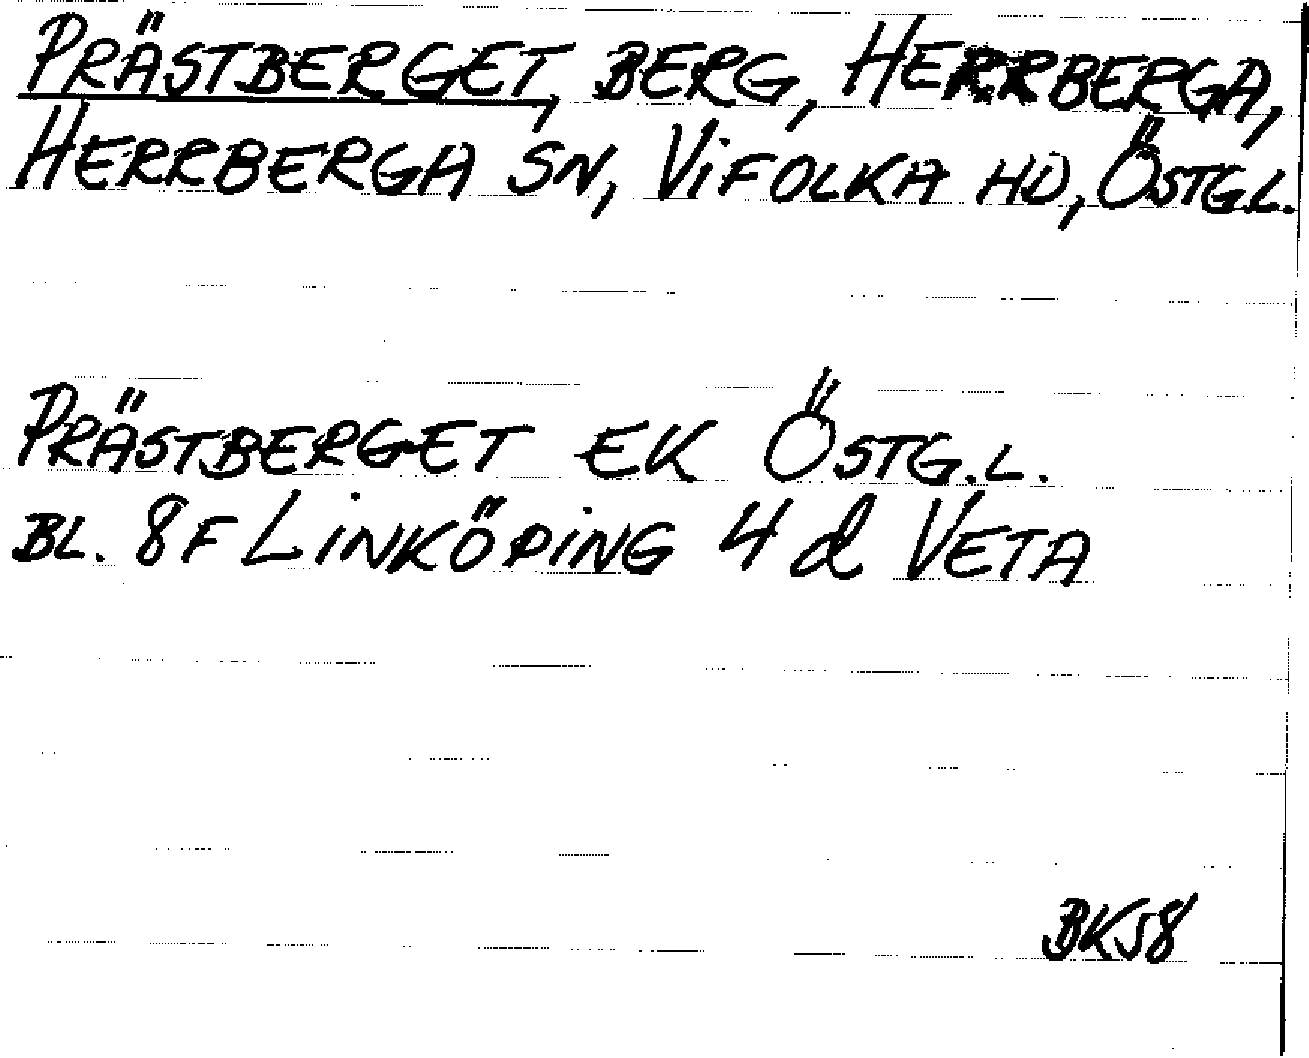 PRÄSTBERGET, BERG, HERRBERGA,
HERRBERGA SN, ViFOLKA HD, ÖSTG.L.
PRÄSTBERGET EK ÖSTG.L.
BL. 8F LiNKÖPiNG 4 d VETA
BK58